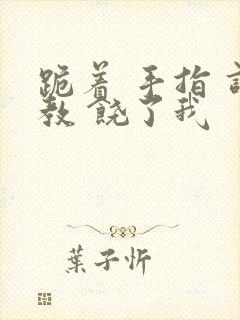 跪着 手指
教 饶了我
葉子忻